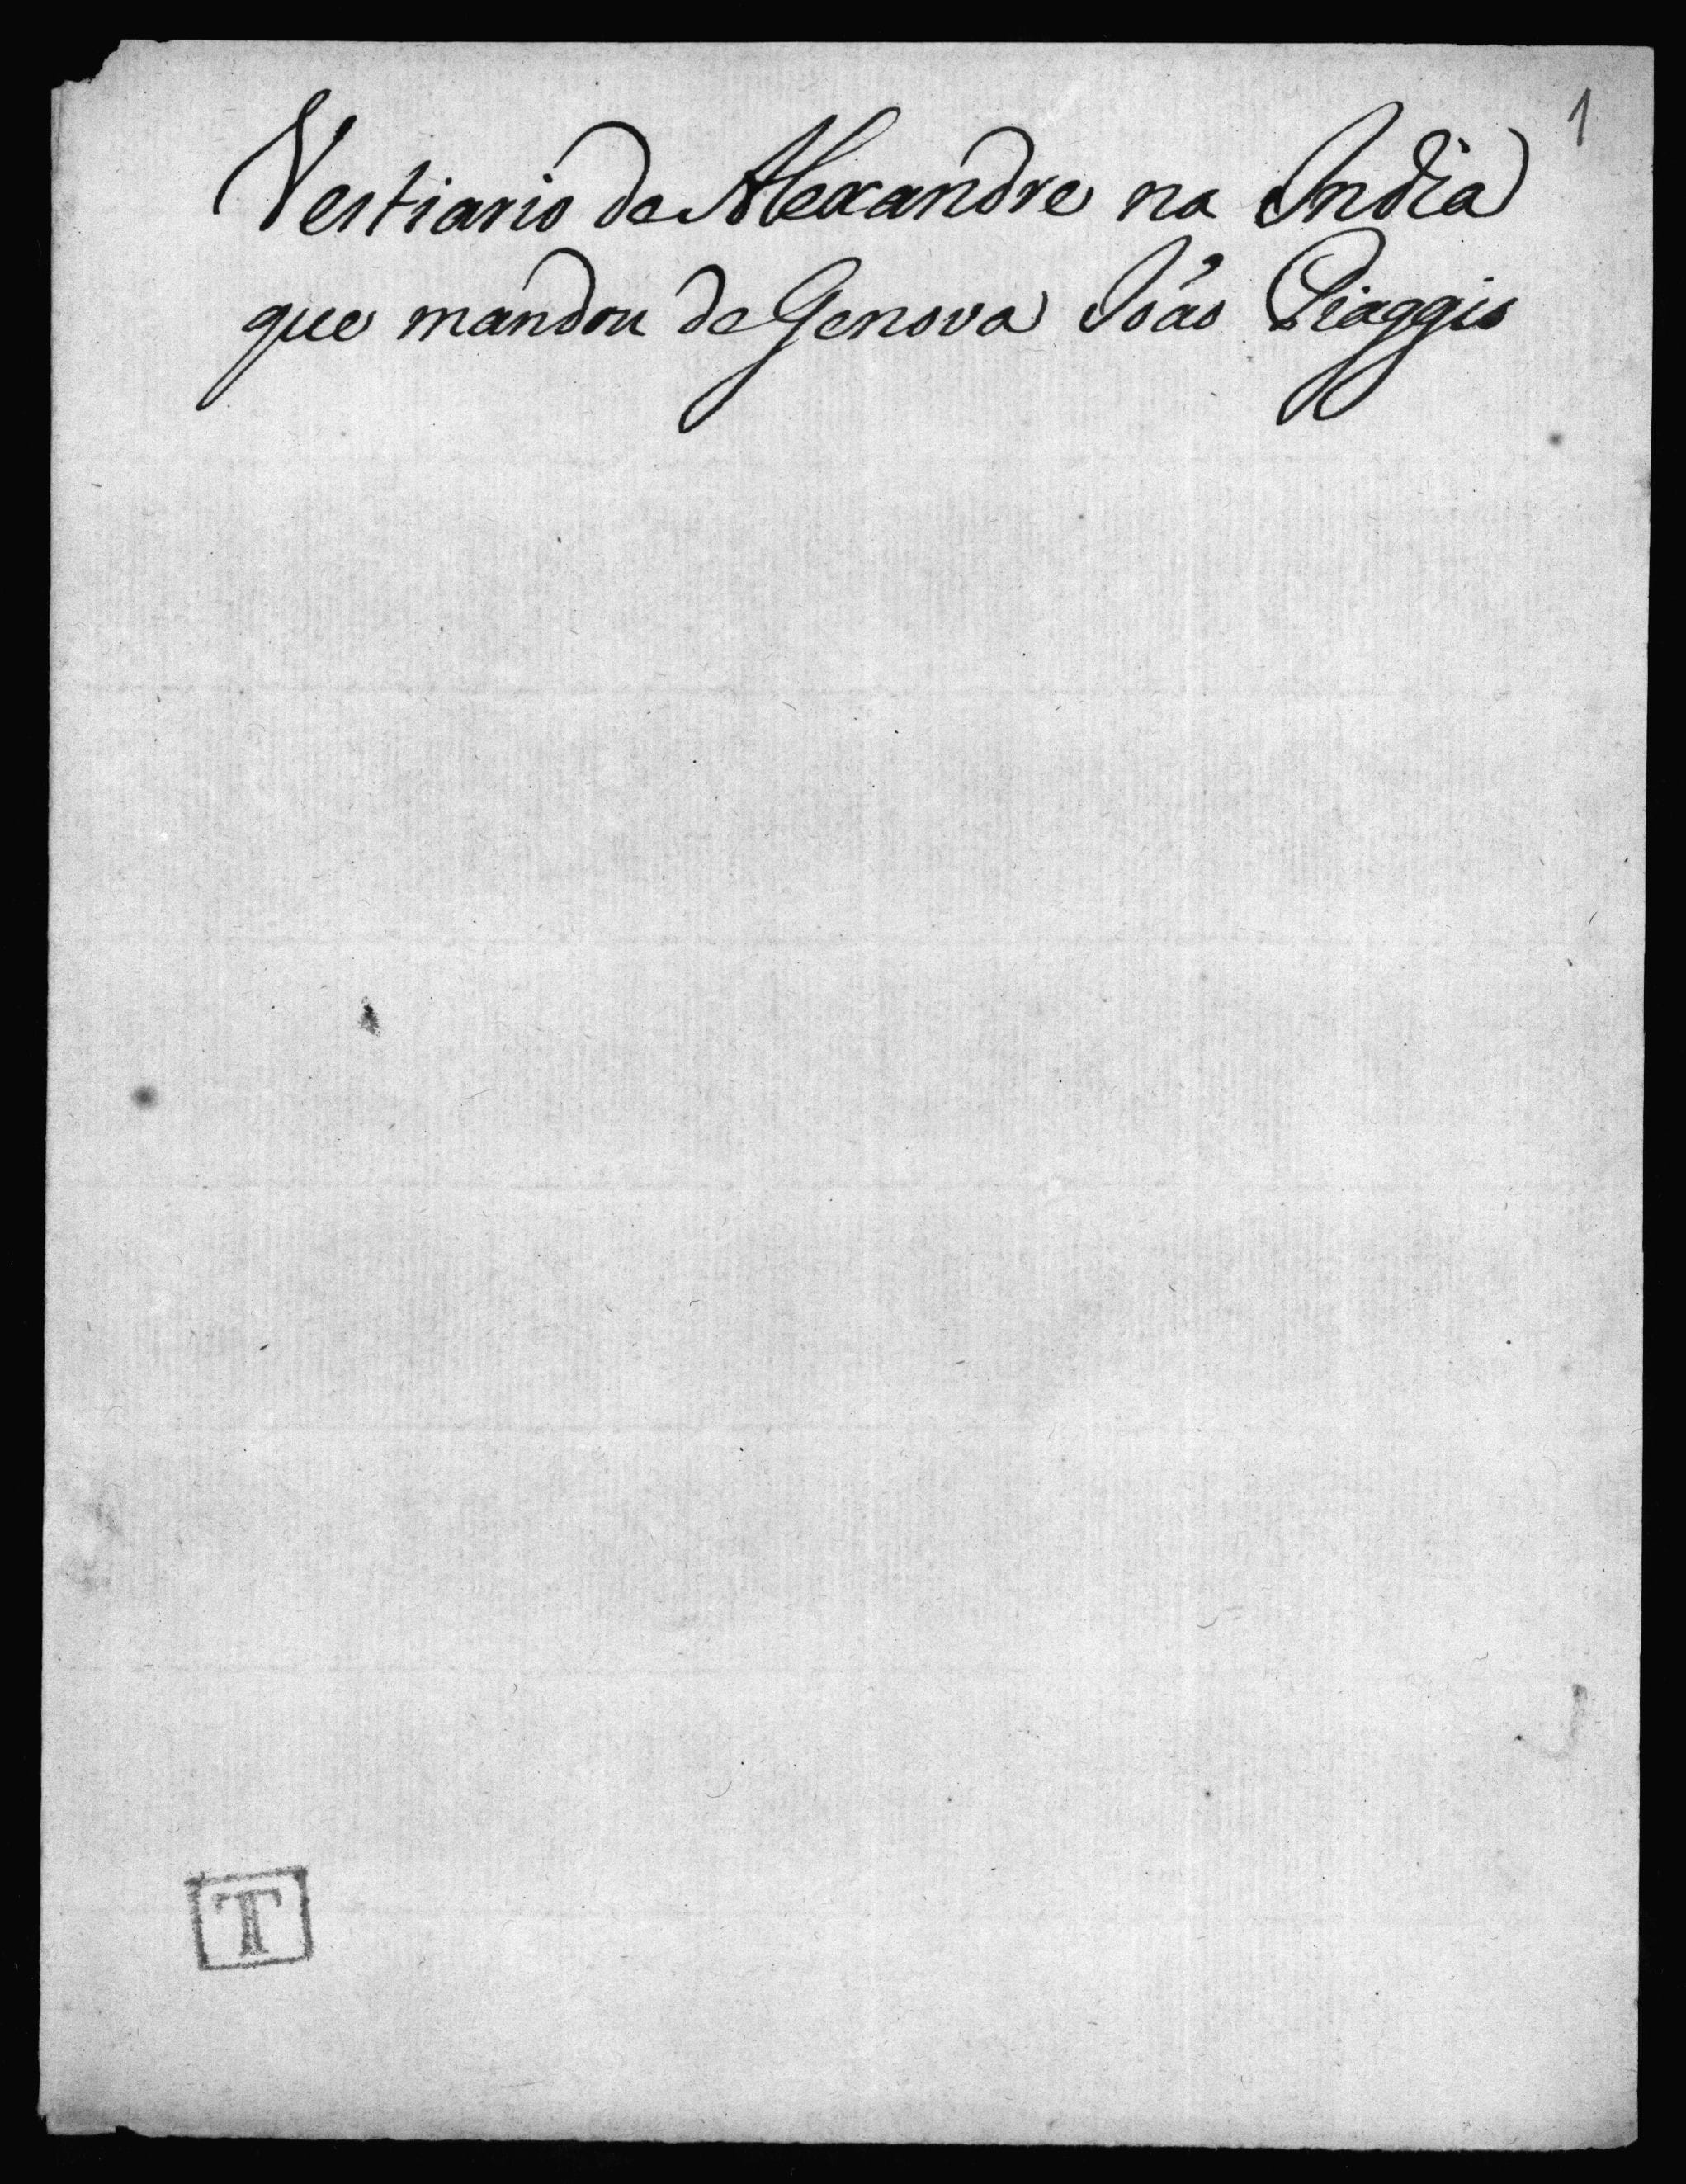 1
Vestiario de Alexandre na India
que mandou de Genova João Piaggio
T